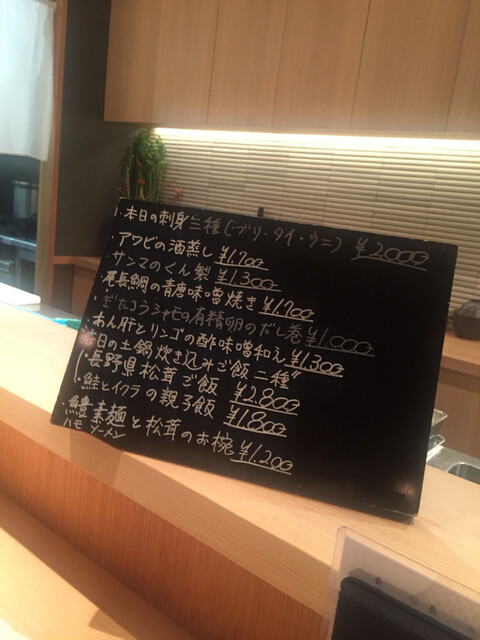 ・本日の刺身三種(・ブリ・タイ・ウニ) ¥2,000
・アワビの酒蒸し ¥1,700
・サンマのくん製 ¥1,300
・尾長鯛の青唐味噌焼き ¥1,700
・ぎたろう軍鶏の有精卵のだし巻 ¥1,000
・あん肝とリンゴの酢味噌和え ¥1,300
本日の土鍋炊き込みご飯二種"
(・長野県松茸ご飯 ¥2,800
・鮭とイクラの親子飯 ¥1,800
・鱧素麺と松茸のお椀 ¥1,200
ハモ ソーメン